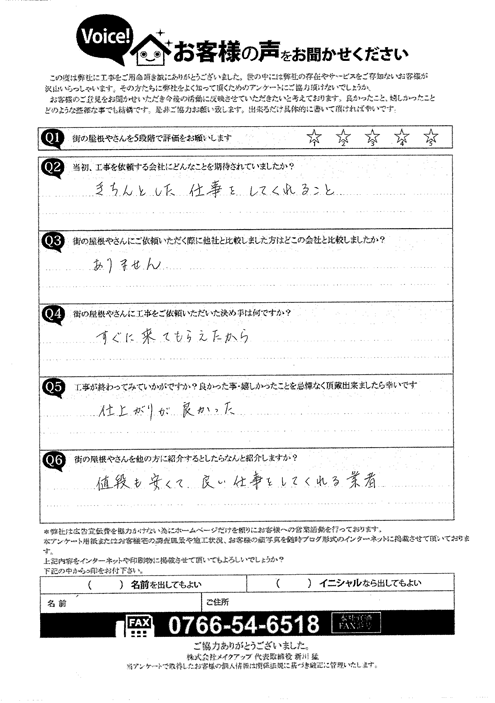 Voice!
お客様の声をお聞かせください
この度は弊社に工事をご用命頂き誠にありがとうございました。世の中には弊社の存在やサービスをご存知ないお客様が
沢山いらっしゃいます。その方たちに弊社をよく知って頂くためのアンケートにご協力頂けないでしょうか。
お客様のご意見をお聞かせいただき今後の活動に反映させていただきたいと考えております。良かったこと、嬉しかったこと
どのような些細な事でも結構です。是非ご協力お願い致します。出来るだけ具体的に書いて頂ければ幸いです。
Q1 街の屋根やさんを5段階で評価をお願いします
Q2 当初、工事を依頼する会社にどんなことを期待されていましたか?
きちんとした 仕事をしてくれること
Q3 街の屋根やさんにご依頼いただく際に他社と比較しました方はどこの会社と比較しましたか?
ありません
Q4 街の屋根やさんに工事をご依頼いただいた決め手は何ですか?
すぐに来てもらえたから
Q5 工事が終わってみていかがですか?良かった事・嬉しかったことを忌憚なく頂戴出来ましたら幸いです
仕上がりが良かった
Q6 街の屋根やさんを他の方に紹介するとしたらなんと紹介しますか?
値段も安くて、良い仕事をしてくれる業者
*弊社は広告宣伝費を極力かけない為にホームページだけを頼りにお客様への営業活動を行っております。
本アンケート用紙またはお客様宅の調査風景や施工状況、お客様の顔写真を随時ブログ形式のインターネットに掲載させて頂いておりま
す。
上記内容をインターネットや印刷物に掲載させて頂いてもよろしいでしょうか?
下記の中から○印をお付け下さい。
( ) 名前を出してもよい ( ) イニシャルなら出してもよい
名前 ご住所
FAX 0766-54-6518
ご協力ありがとうございました。
株式会社メイクアップ 代表取締役 新川 猛
当アンケートで取得したお客様の個人情報は関係法規に基づき厳正に管理いたします。